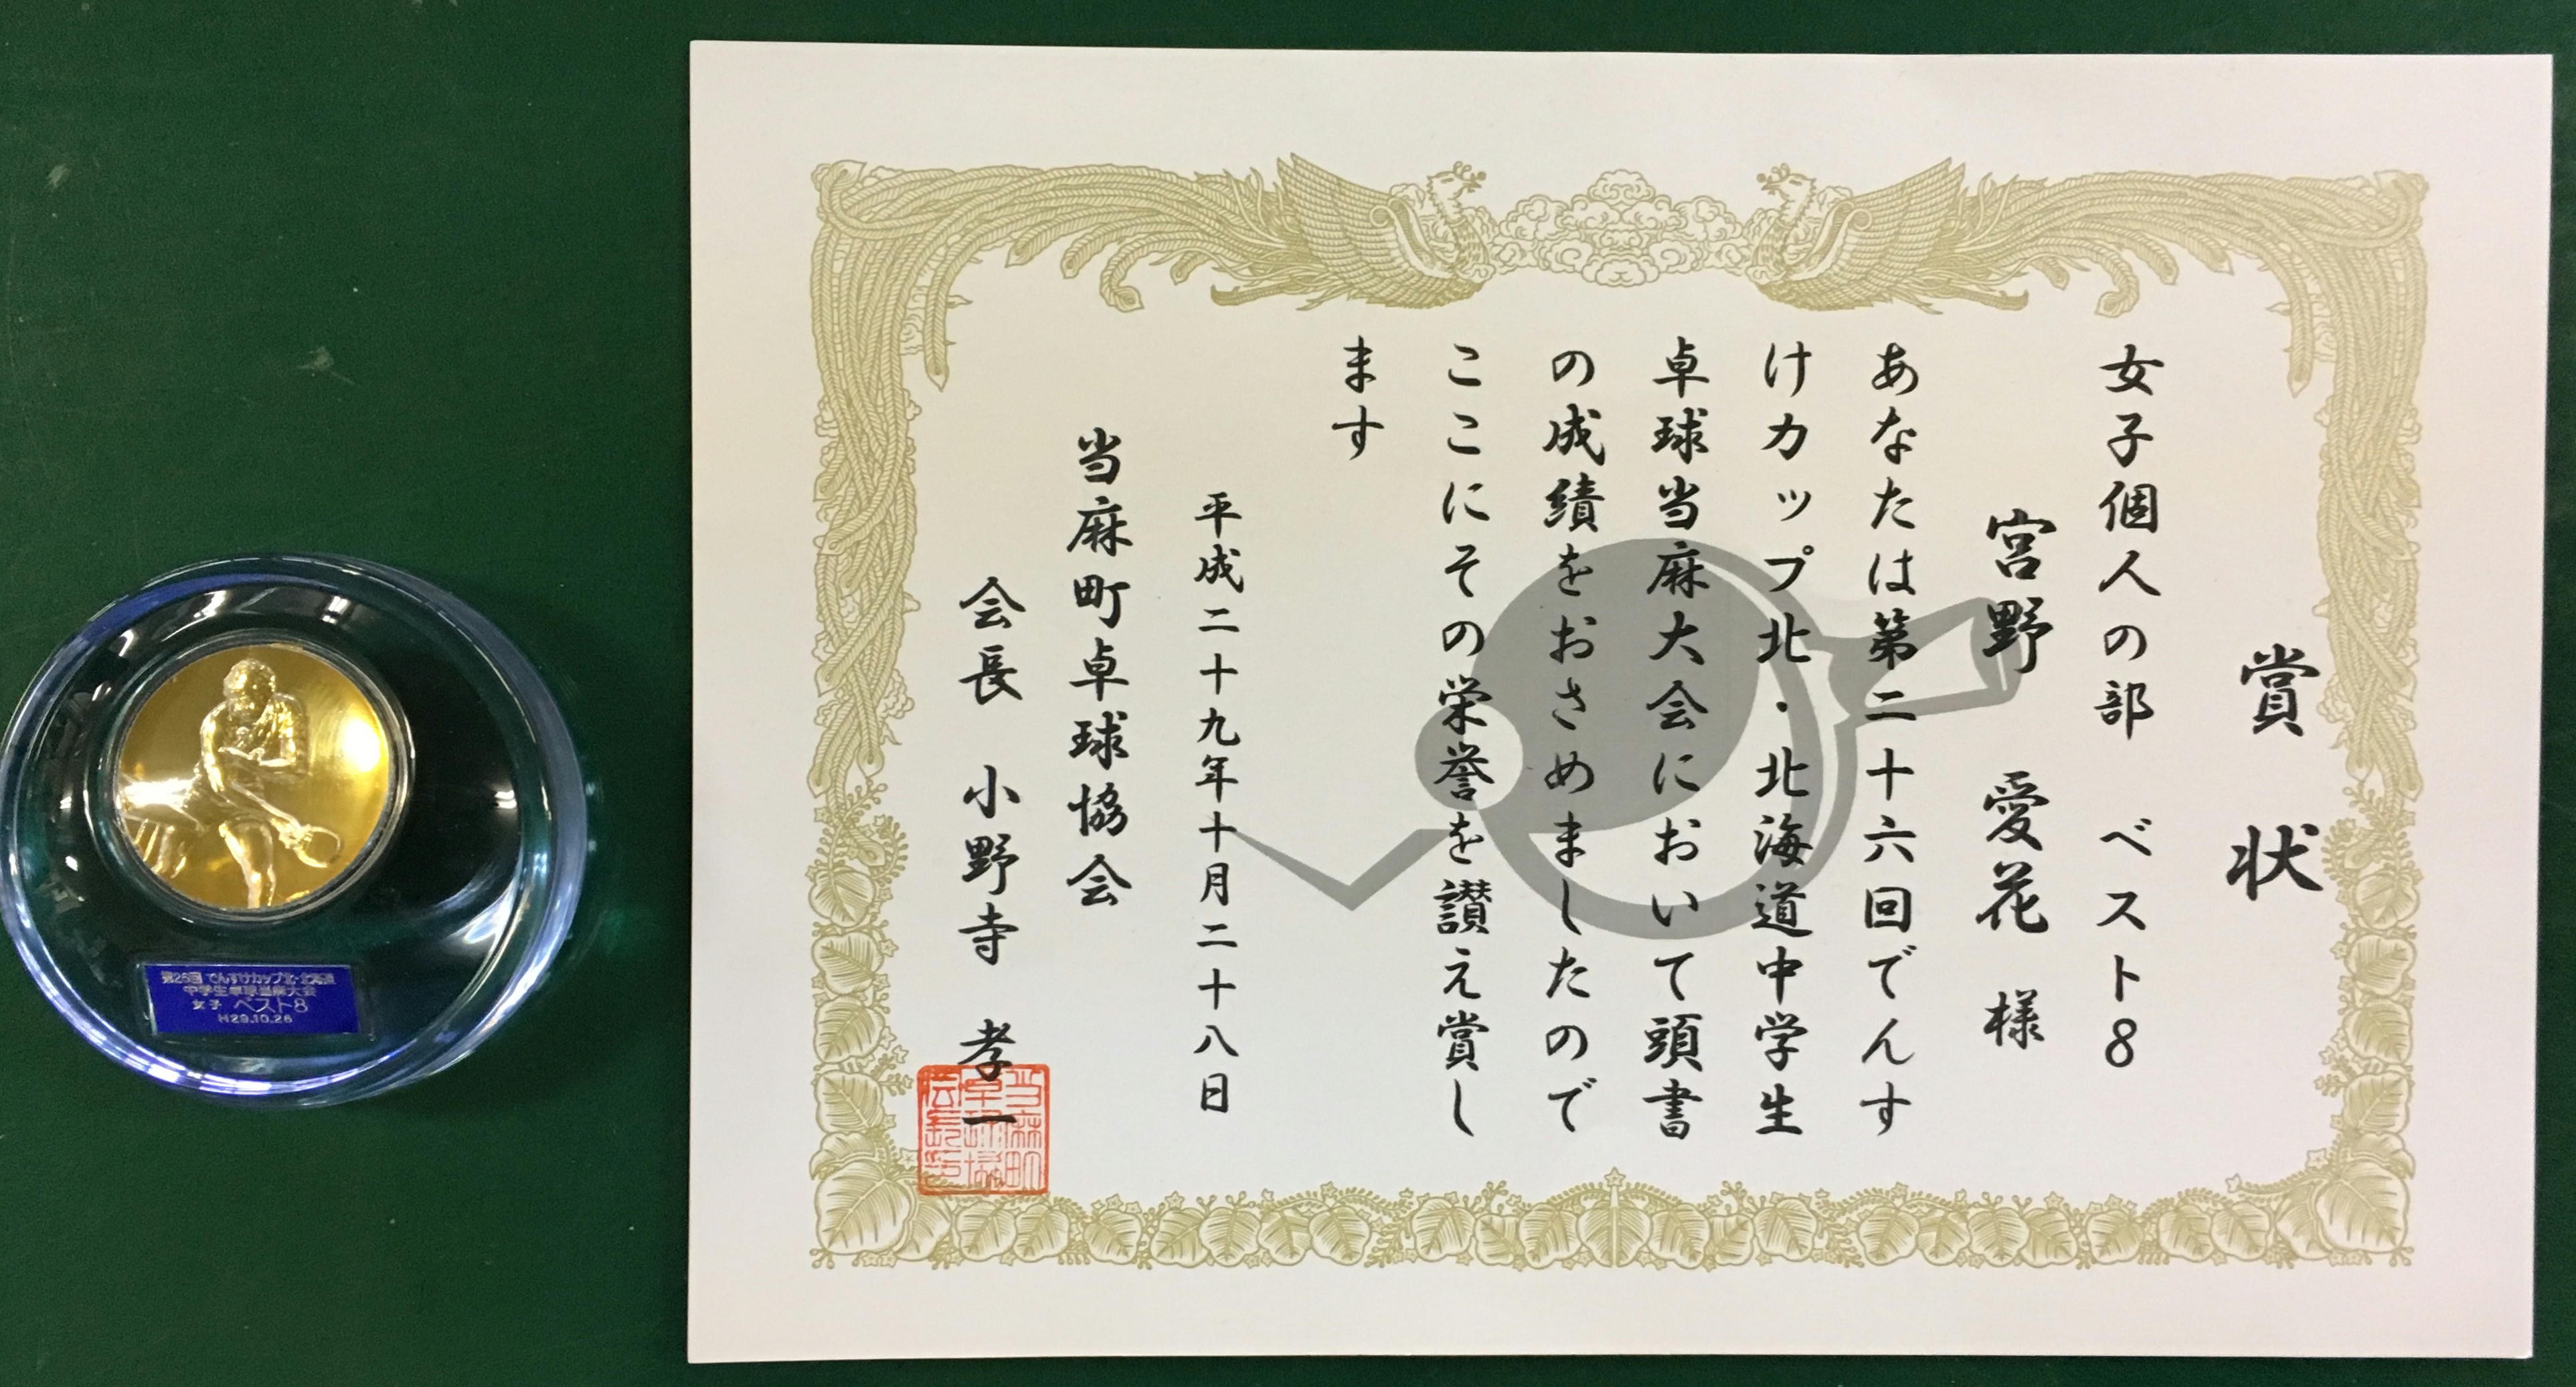 賞状
女子個人の部 ベスト8
宮野 愛花 様
あなたは第二十六回でんす
けカップ北・北海道中学生
卓球当麻大会において頭書
の成績をおさめましたので
ここにその栄誉を讃え賞し
ます
平成二十九年十月二十八日
当麻町卓球協会
会長 小野寺 孝一
当麻町
卓球協
会長印
第26回 でんすけカップ北・北海道
中学生卓球当麻大会
女子 ベスト8
H29.10.28